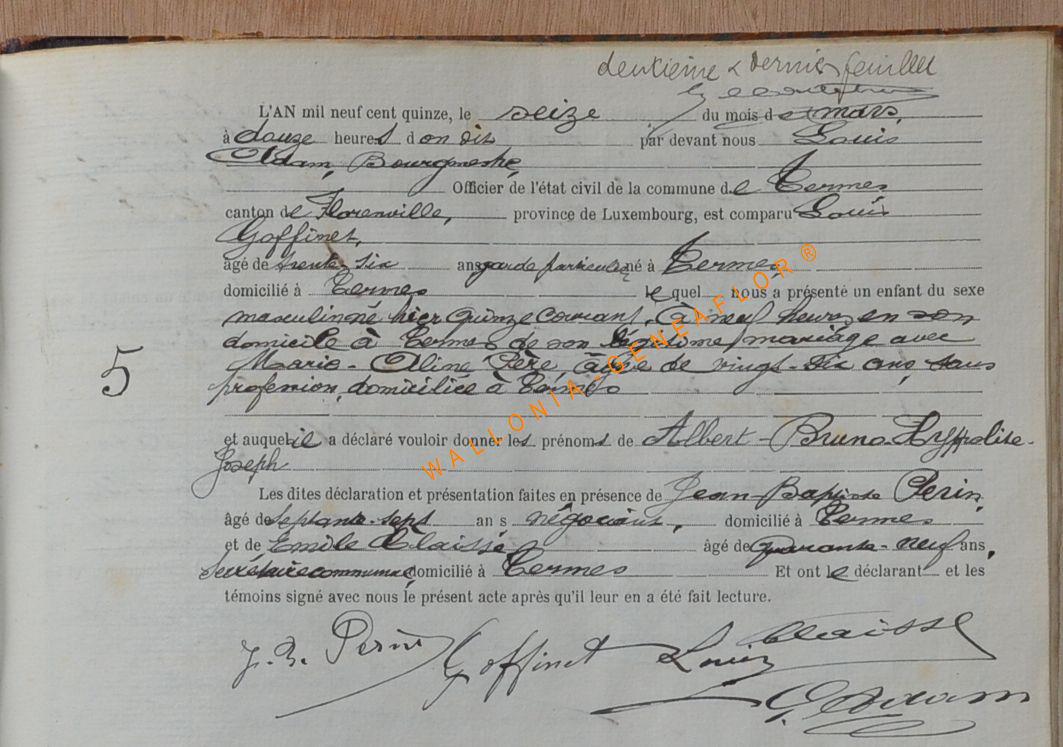 deuxième & dernier feuillet
L'AN mil neuf cent quinze, le seize du mois de mars,
à douze heures d on dit par devant nous Louis
Adam, Bourgmestre,
Officier de l'état civil de la commune de Termes
canton de Florenville, province de Luxembourg, est comparu Louis
Goffinet,
âgé de trente six ans garde particulier né à Termes
domicilié à Termes le quel nous a présenté un enfant du sexe
masculin né hier quinze courant, à neuf heures en son
domicile à Termes de son légitime mariage avec
Marie-Aline Père, âgée de vingt-six ans, sans
profession, domiciliée à Termes
5
et auquel il a déclaré vouloir donner les prénoms de Albert-Bruno-Hyppolite-
Joseph
Les dites déclaration et présentation faites en présence de Jean-Baptiste Perin,
âgé de septante-sept ans négociant, domicilié à Termes
et de Emile Claisse, âgé de quarante-neuf ans,
secrétaire communal, domicilié à Termes Et ont le déclarant et les
témoins signé avec nous le présent acte après qu'il leur en a été fait lecture.
J. B. Perin Goffinet Louis Claisse
L Adam
WALLONIA-GENEAFLOR®